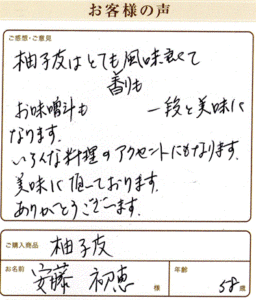 お客様の声
ご感想・ご意見
柚子友はとても風味良くて
香りも
お味噌汁も 一段と美味に
なります。
いろんな料理のアクセントにもなります。
美味に頂いております。
ありがとうございます。
ご購入商品 柚子友
お名前 安藤 初恵 様 年齢 58歳